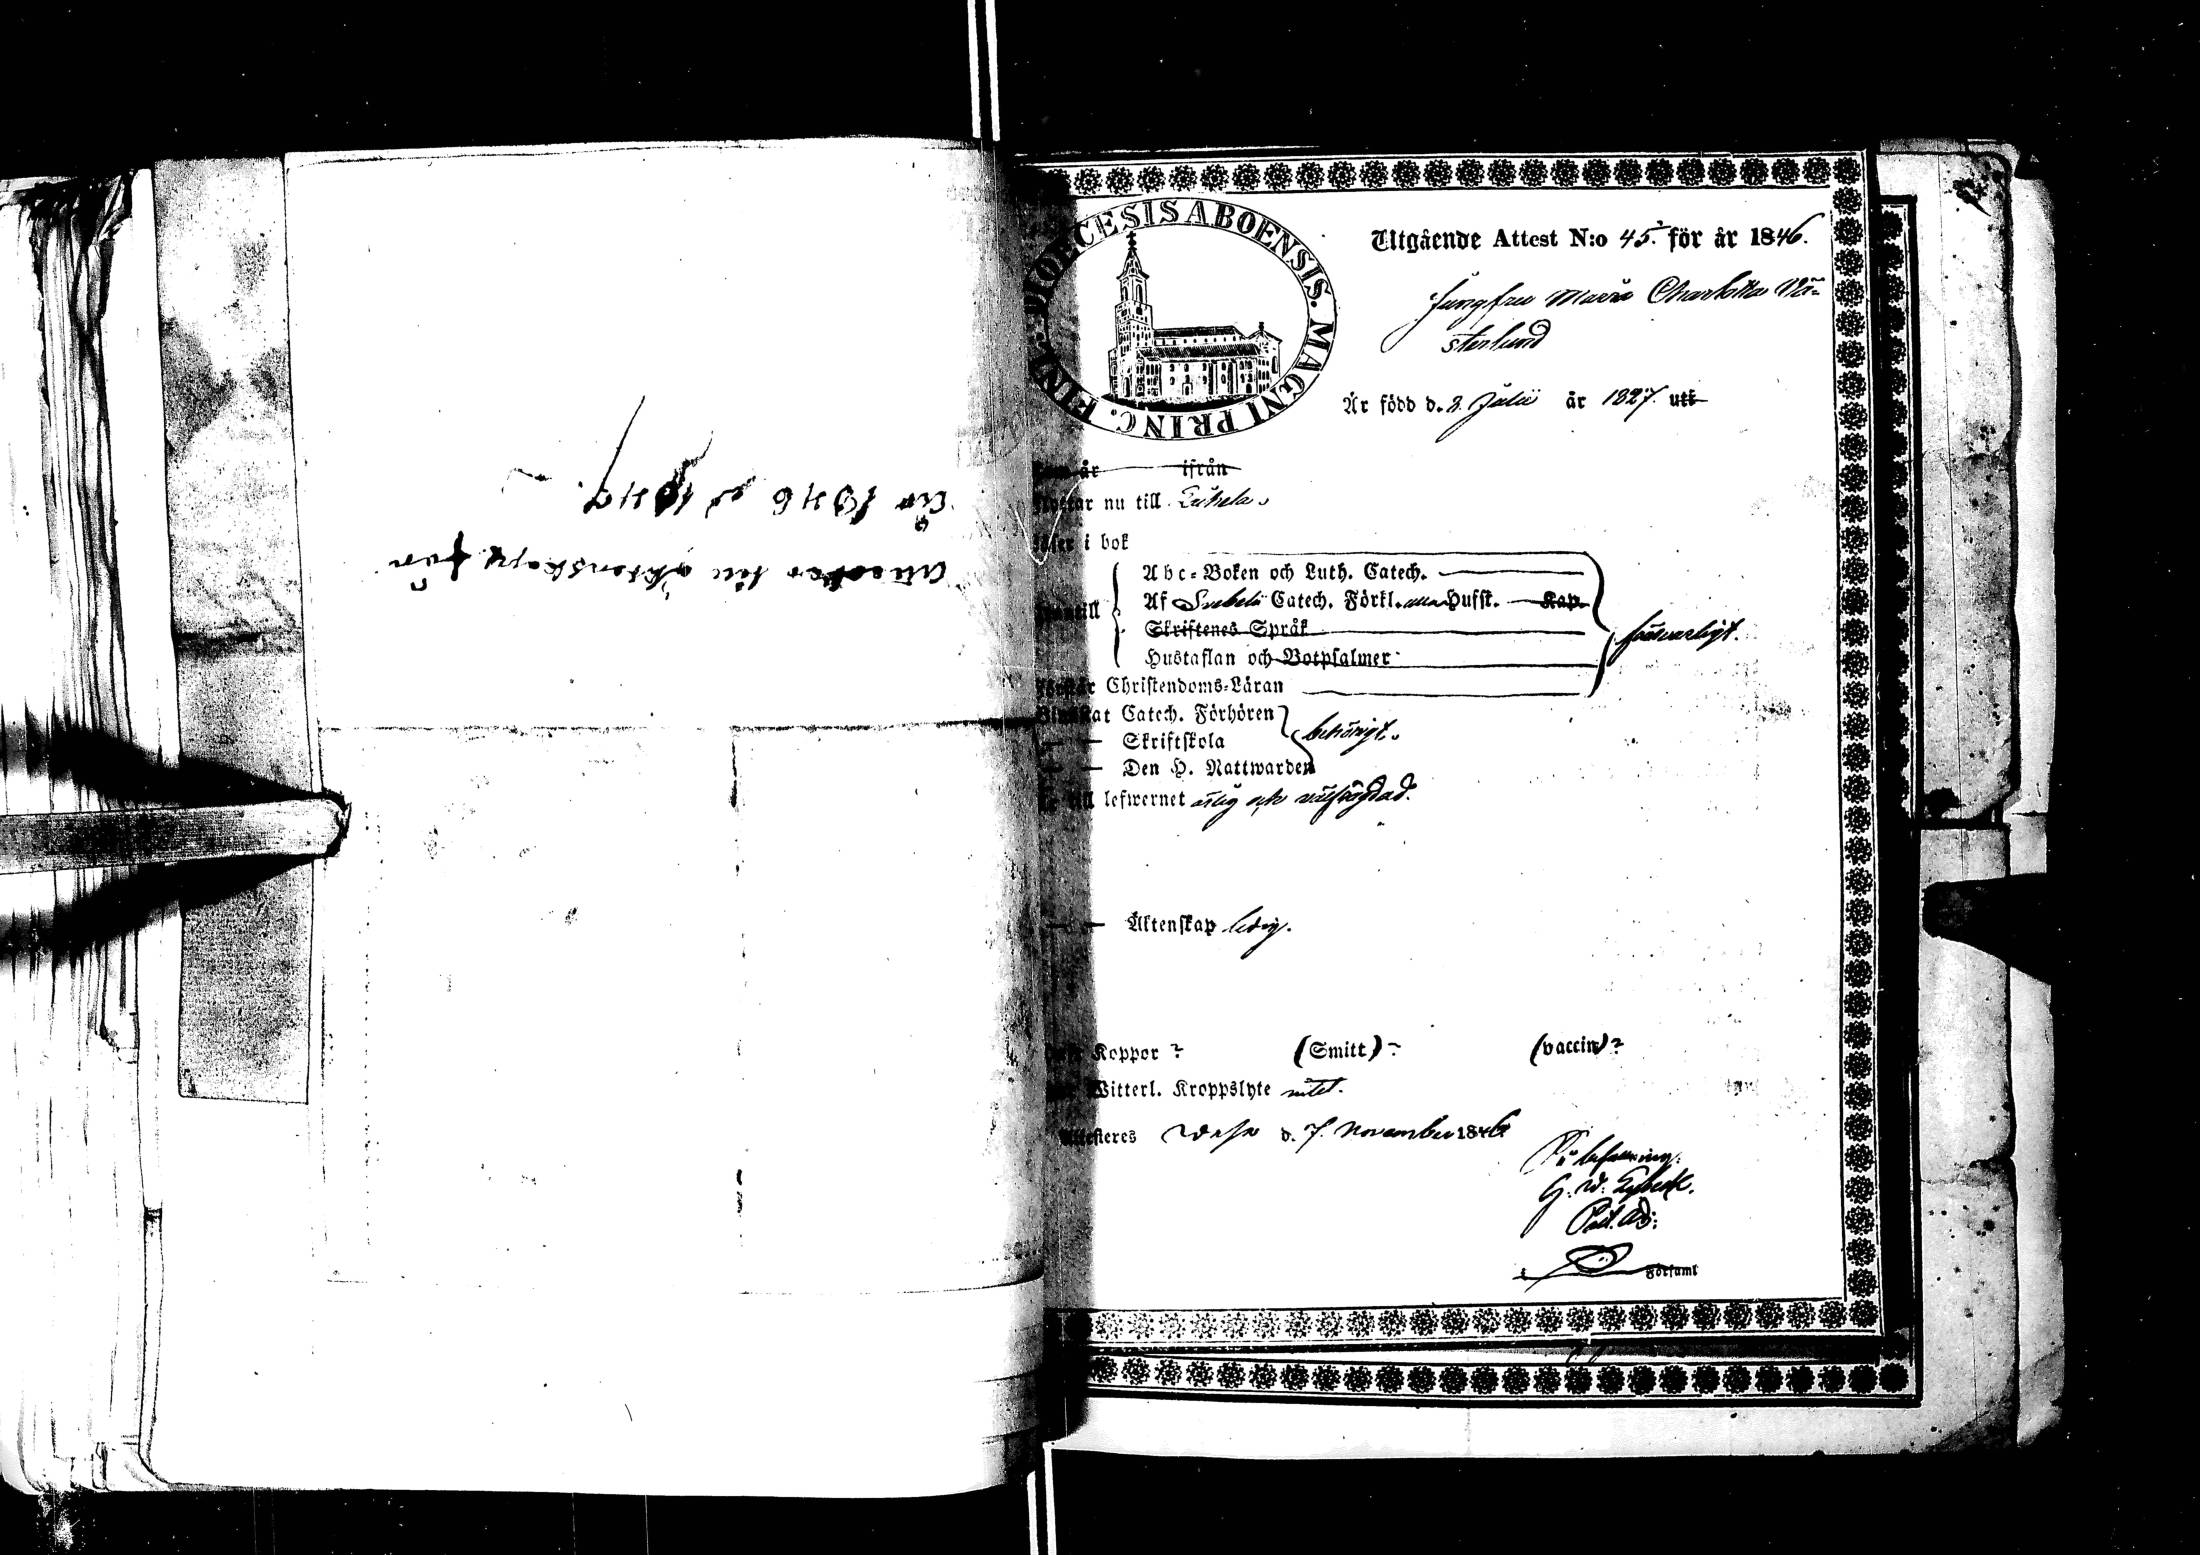 Attester till äktenskap för
år 1846 o 1847.
DIOECESIS ABOENSIS. MAGNI PRINC. FINL.
Utgående Attest N:o 45. för år 1846.
Jungfru Maria Charlotta Wä-
sterlund
Är född d. 3. Julii år 1827. uti
år ifrån
nu till
i bok
Abc-Boken och Luth. Catech.
Af Svebelii Catech. Förkl. Hufst. Kap.
Skriftenes Språk
försvarligt.
Hustaflan och Botpsalmer
Christendoms-Läran
Catech. Förhören
behörigt.
Skriftskola
Den H. Nattwarden
till lefwernet ärlig och välfrägdad.
Äktenskap ledig.
Koppor ? (Smitt) ? (vaccin) ?
Witterl. Kroppslyte intet.
Attesteres d. 7. November 1846
På befallning:
G. W.
Past. Adj:
i Församl